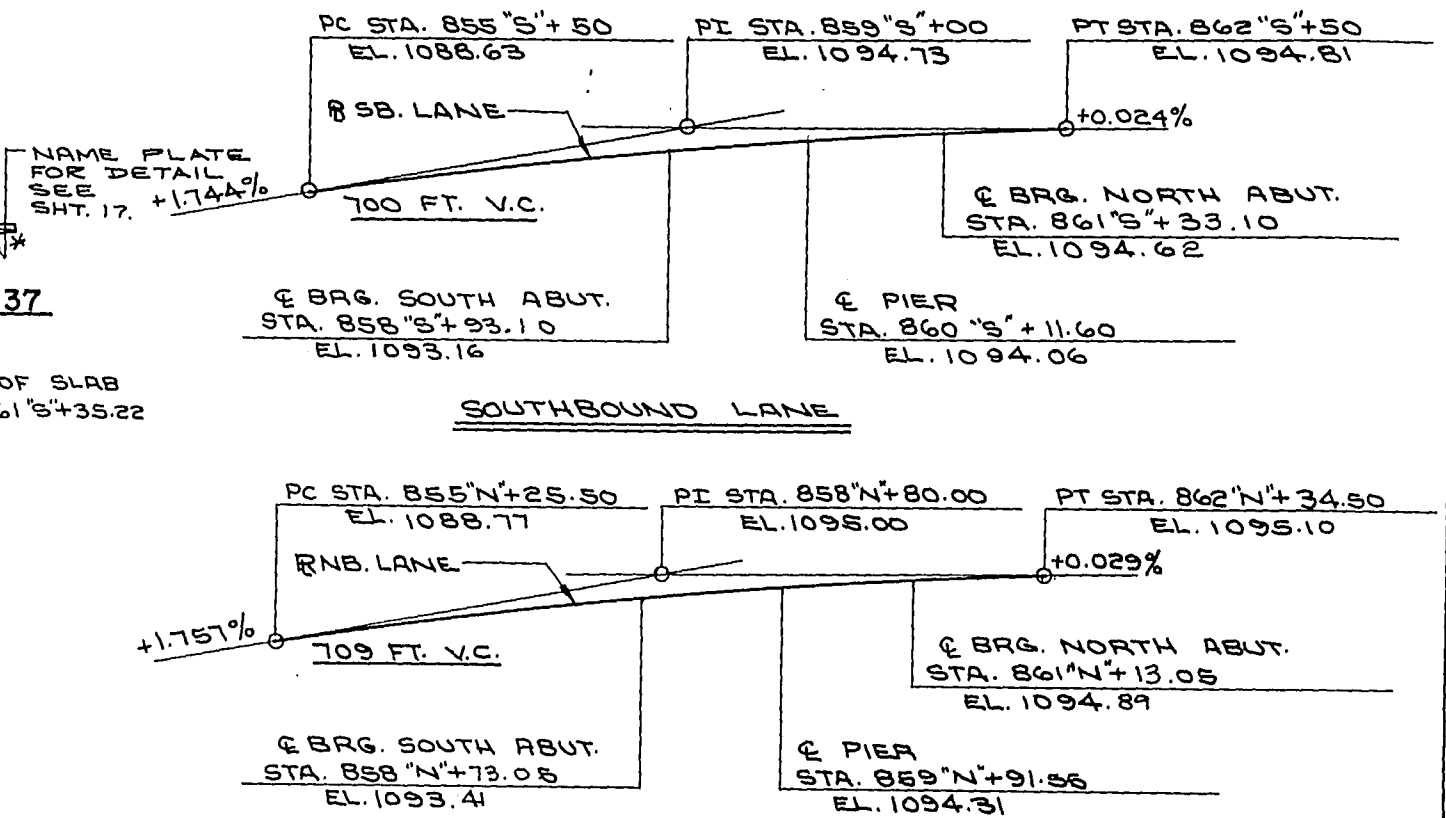 PC STA. 855"S"+50
EL. 1088.63
PI STA. 859"S"+00
EL. 1094.73
PT STA. 862"S"+50
EL. 1094.81
SB. LANE
+0.024%
NAME PLATE
FOR DETAIL
SEE
SHT. 17.
+1.744%
700 FT. V.C.
℄ BRG. NORTH ABUT.
STA. 861"S"+33.10
EL. 1094.62
37
℄ BRG. SOUTH ABUT.
STA. 858"S"+93.10
EL. 1093.16
℄ PIER
STA. 860"S"+11.60
EL. 1094.06
OF SLAB
61"S"+35.22
SOUTHBOUND LANE
PC STA. 855"N"+25.50
EL. 1088.77
PI STA. 858"N"+80.00
EL. 1095.00
PT STA. 862"N"+34.50
EL. 1095.10
NB. LANE
+0.029%
+1.757%
709 FT. V.C.
℄ BRG. NORTH ABUT.
STA. 861"N"+13.05
EL. 1094.89
℄ BRG. SOUTH ABUT.
STA. 858"N"+73.05
EL. 1093.41
℄ PIER
STA. 859"N"+91.55
EL. 1094.31